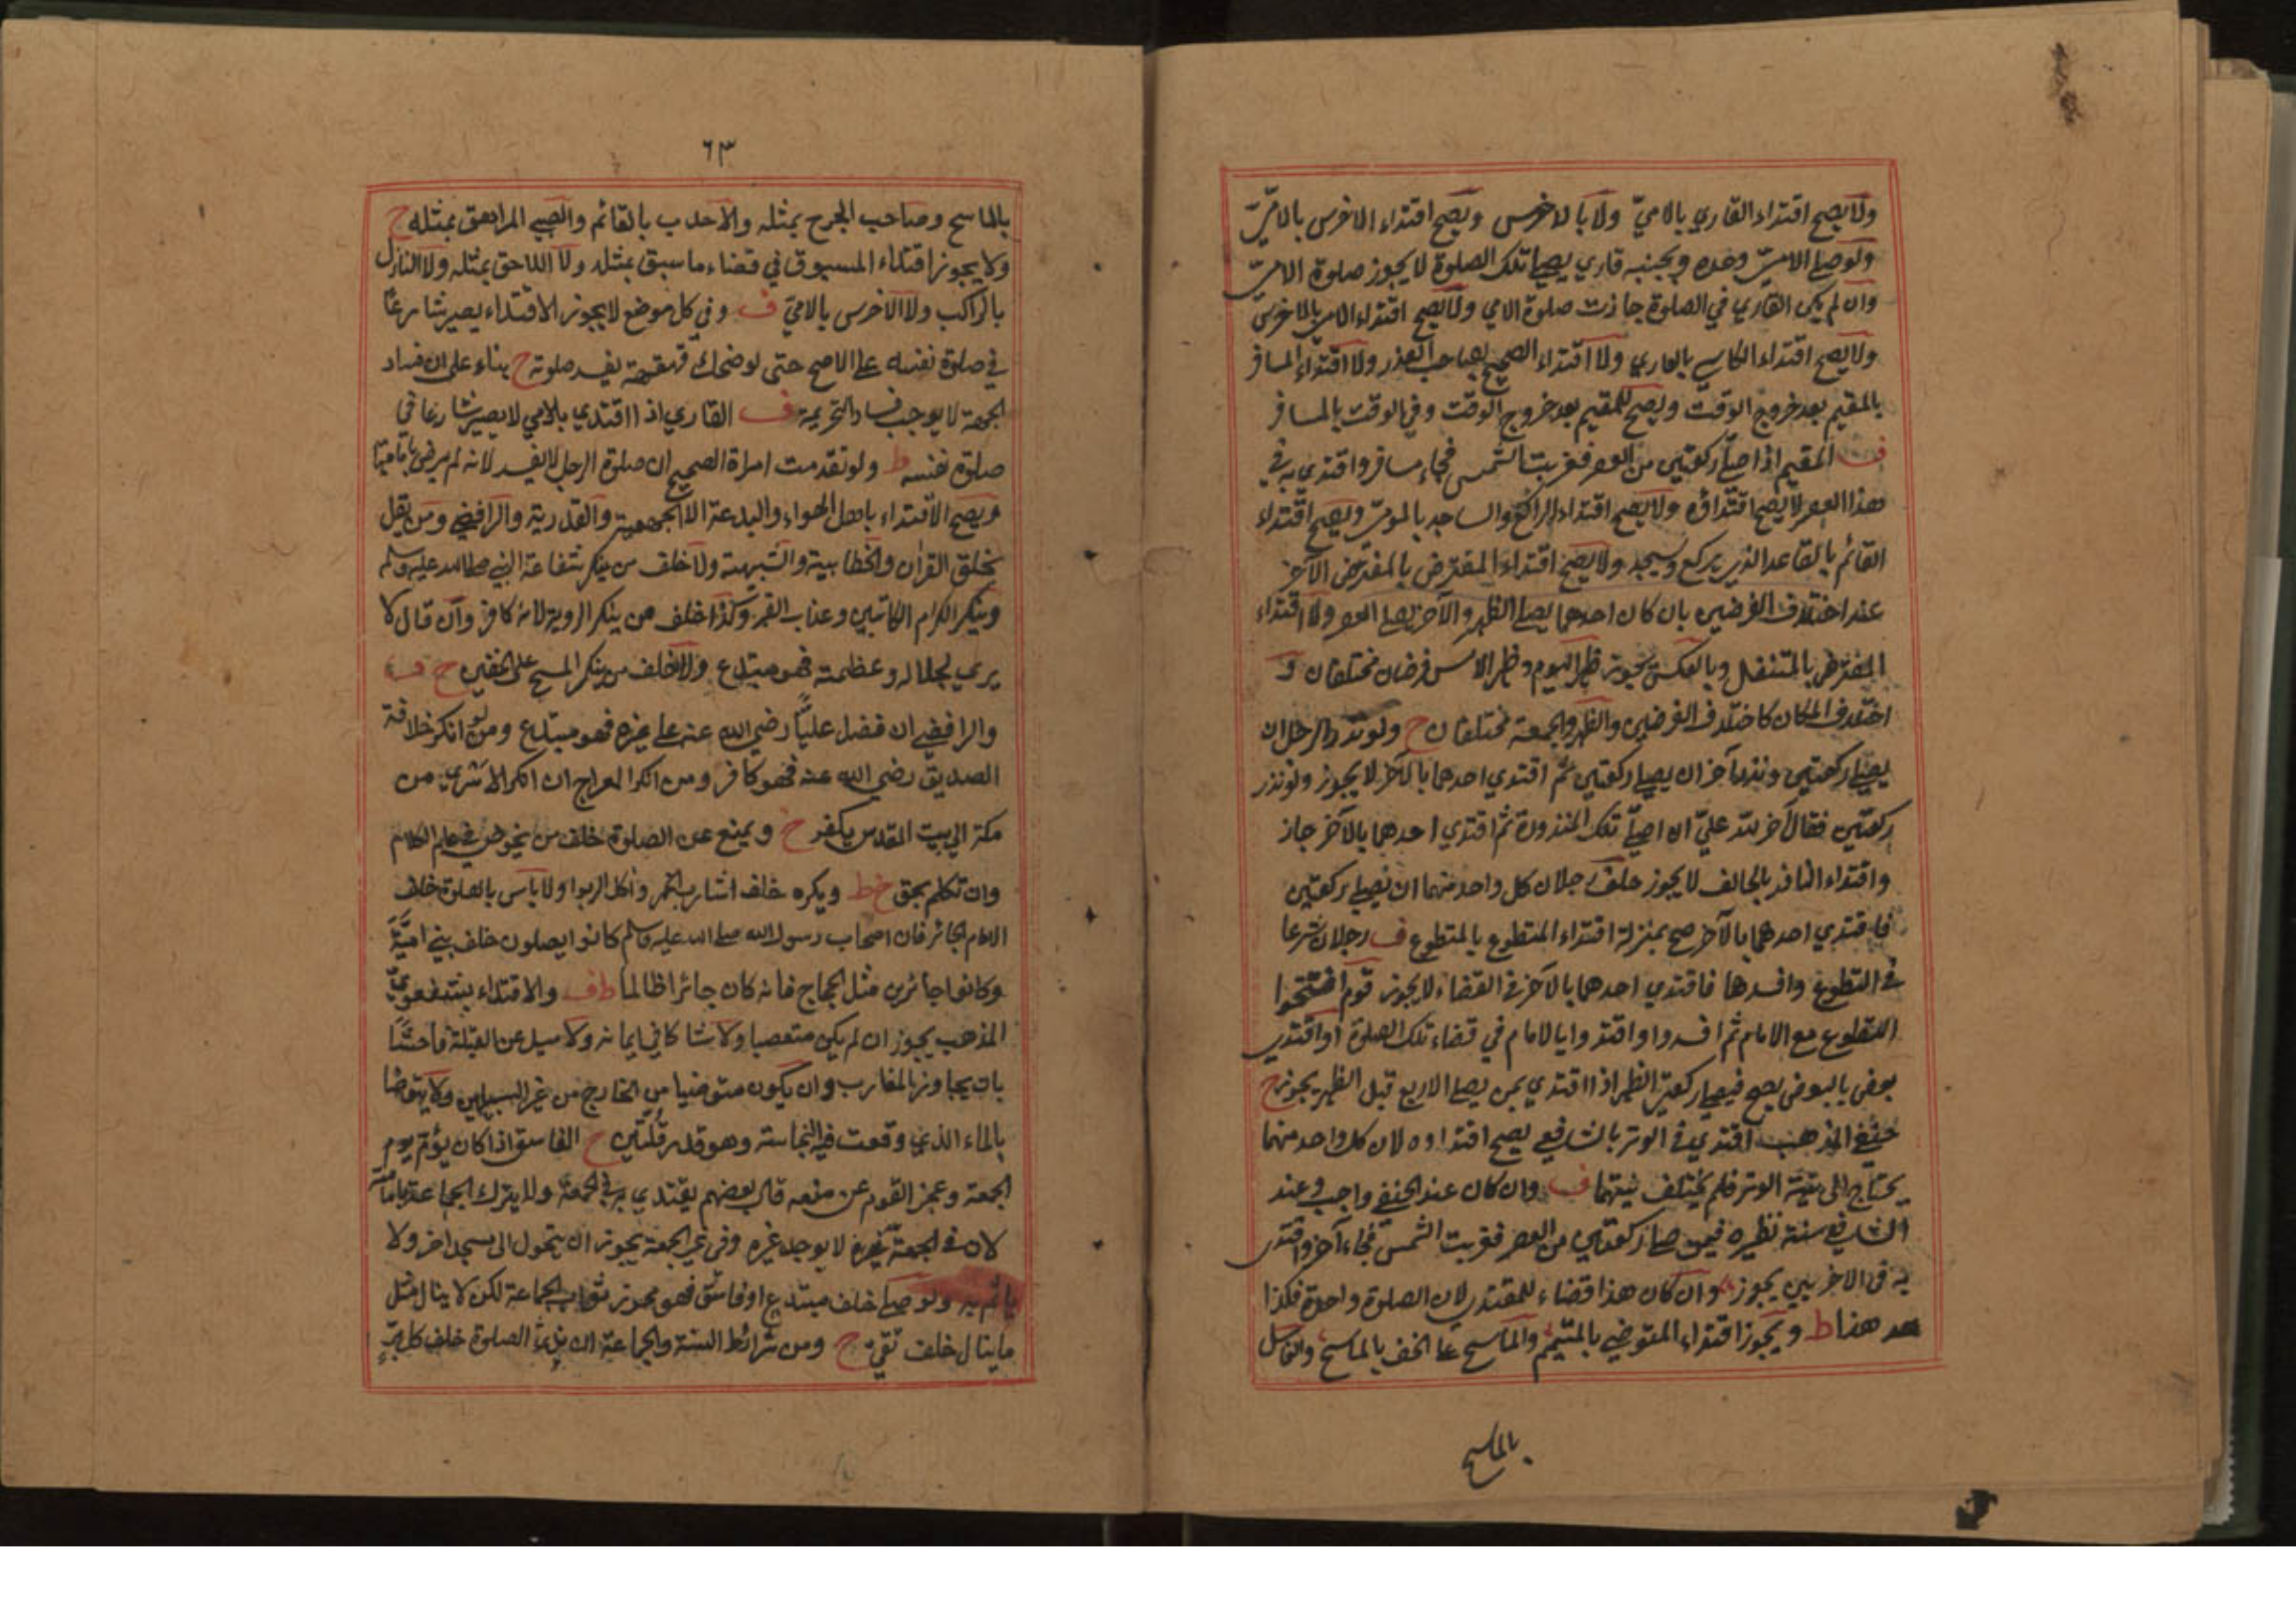 ولا يصح اقتداء القاري بالامي ولا بالاخرس ويصح اقتداء الاخرس بالامي
ولو صلى الامي وحده وبجنبه قاري يصلي تلك الصلوة لا يجوز صلوة الامي
وان لم يكن القاري في الصلوة جازت صلوة الامي ولا يصح اقتداء الامي بالاخرس
ولا يصح اقتداء الكاسي بالعاري ولا اقتداء الصحيح بصاحب العذر ولا اقتداء المسافر
بالمقيم بعد خروج الوقت ويصح للمقيم بعد خروج الوقت وفي الوقت بالمسافر
ف المقيم اذا صلى ركعتين من العصر فغربت الشمس فجاء مسافر واقتدي به في
هذا العصر لا يصح اقتداؤه ولا يصح اقتداء الراكع والساجد بالمومي ويصح اقتداء
القائم بالقاعد الذي يركع ويسجد ولا يصح اقتداء المفترض بالمفترض الآخر
عند اختلاف الفرضين بان كان احدهما يصلي الظهر والآخر يصلي العصر ولا اقتداء
المفترض بالمتنفل وبالعكس يجوز ظهر اليوم وظهر الامس فرضان مختلفان و
اختلاف المكان كاختلاف الفرضين والظهر والجمعة مختلفان ح ولو نذر الرجل ان
يصلي ركعتين ونذر آخر ان يصلي ركعتين ثم اقتدي احدهما بالآخر لا يجوز ولو نذر
ركعتين فقال آخر لله علي ان اصلي تلك المنذورة ثم اقتدي احدهما بالآخر جاز
واقتداء الناذر بالحالف لا يجوز حلف رجلان كل واحد منهما ان يصلي ركعتين
فاقتدي احدهما بالآخر صح بمنزلة اقتداء المتطوع بالمتطوع ف رجلان شرعا
في التطوع وافسدها فاقتدي احدهما بالآخر في القضاء لا يجوز قوم افتتحوا
التطوع مع الامام ثم افسدوا واقتدوا بالامام في قضاء تلك الصلوة او اقتدي
بعض بالبعض يصح فيصلي ركعتي الظهر اذا اقتدي بمن يصلي الاربع قبل الظهر يجوز ح
حنفي المذهب اقتدي في الوتر بالشافعي يصح اقتداوه لان كل واحد منهما
يحتاج الى نية الوتر فلم يختلف نيتهما ف وان كان عند الحنفي واجب وعند
الشافعي سنة نظيره فيمن صلى ركعتين من العصر فغربت الشمس فجاء آخر واقتدي
به في الاخريين يجوز وان كان هذا قضاء للمقتدي لان الصلوة واحدة فكذا
هذا ط ويجوز اقتداء المتوضي بالمتيمم والماسح على الخف بالماسح والغاسل
بالماسح
٦٣
بالماسح وصاحب الجرح بمثله والاحدب بالقائم والصبي المراهق بمثله ح
ولا يجوز اقتداء المسبوق في قضاء ما سبق بمثله ولا اللاحق بمثله ولا النازل
بالراكب ولا الاخرس بالامي ف وفي كل موضع لا يجوز الاقتداء يصير شارعا
في صلوة نفسه على الاصح حتى لو ضحك قهقهة يفسد صلوته ح بناء على ان فساد
الجهة لا يوجب فساد التحريمة ف القاري اذا اقتدي بالامي لا يصير شارعا في
صلوة نفسه ط ولو تقدمت امراة الصحيح ان صلوة الرجل لا يفسد لانه لم يرض بامامتها
ويصح الاقتداء باهل الهواء والبدعة الا الجهمية والقدرية والرافضي ومن يقل
بخلق القرآن والخطابية والمشبهة ولا خلف من ينكر شفاعة النبي صلى الله عليه وسلم
وينكر الكرام الكاتبين وعذاب القبر وكذا خلف من ينكر الروية لانه كافر وان قال لا
يري لجلاله وعظمته فهو مبتدع ولا خلف من ينكر المسح على الخفين ح ف
والرافضي ان فضل عليا رضي الله عنه على غيره فهو مبتدع ومن انكر خلافة
الصديق رضي الله عنه فهو كافر ومن انكر المعراج ان انكر الاسري من
مكة الى بيت المقدس يكفر خ ويمنع عن الصلوة خلف من يخوض في علم الكلام
وان تكلم بحق خ ط ويكره خلف شارب الخمر واكل الربوا ولا باس بالصلوة خلف
الامام الجائر فان اصحاب رسول الله صلى الله عليه وسلم كانوا يصلون خلف بني امية
وكانوا جائرين مثل الحجاج فانه كان جائرا ظالما ط ف والاقتداء بشفعوي
المذهب يجوز ان لم يكن متعصبا ولا شاكا في ايمانه ولا ميل عن القبلة فاحشا
بان يجاوز المغارب وان يكون متوضيا من الخارج من غير السبيلين ولا يتوضا
بالماء الذي وقعت فيه النجاسة وهو قدر قلتين ح الفاسق اذا كان يؤم يوم
الجمعة وعجز القوم عن منعه قال بعضهم يقتدي به في الجمعة ولا يترك الجماعة بامامته
لان في الجمعة لا يوجد غيره وفي غير الجمعة يجوز ان يتحول الى مسجد آخر ولا
ياثم به ولو صلى خلف مبتدع او فاسق فهو محرز ثواب الجماعة لكن لا ينال مثل
ما ينال خلف تقي ح ومن شرائط السنة والجماعة ان يري الصلوة خلف كل بر